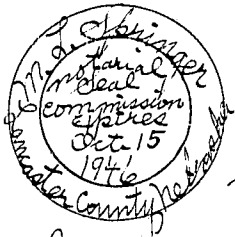 M. L. Springer
notarial
Seal
commission
expires
Oct. 15
1946
Lancaster County Nebraska